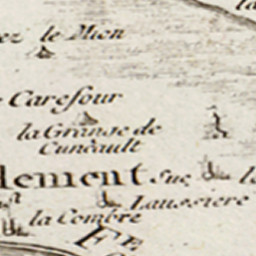 ez le Mion
Carefour
la Grange de
Cunéault
lement Sue
Laussiere
la Combre